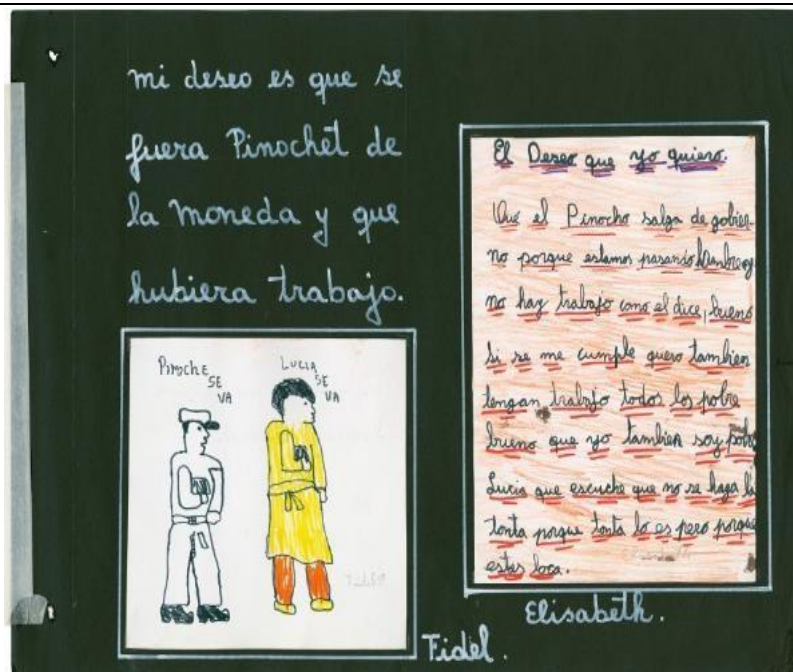 mi deseo es que se
fuera Pinochet de
la moneda y que
hubiera trabajo.
Pinoche
SE
VA
LUCIA
SE
VA
Fidel.
El Deseo que yo quiero.
Que el Pinocho salga de gobier
no porque estamos pasando hambre y
no hay trabajo como el dice, bueno
si se me cumple quero tambien
tengan trabajo todos los pobre
bueno que yo tambien soy pobre
Lucia que escuche que no se haga la
tonta porque tonta lo es pero porque
estas loca.
Elisabeth.